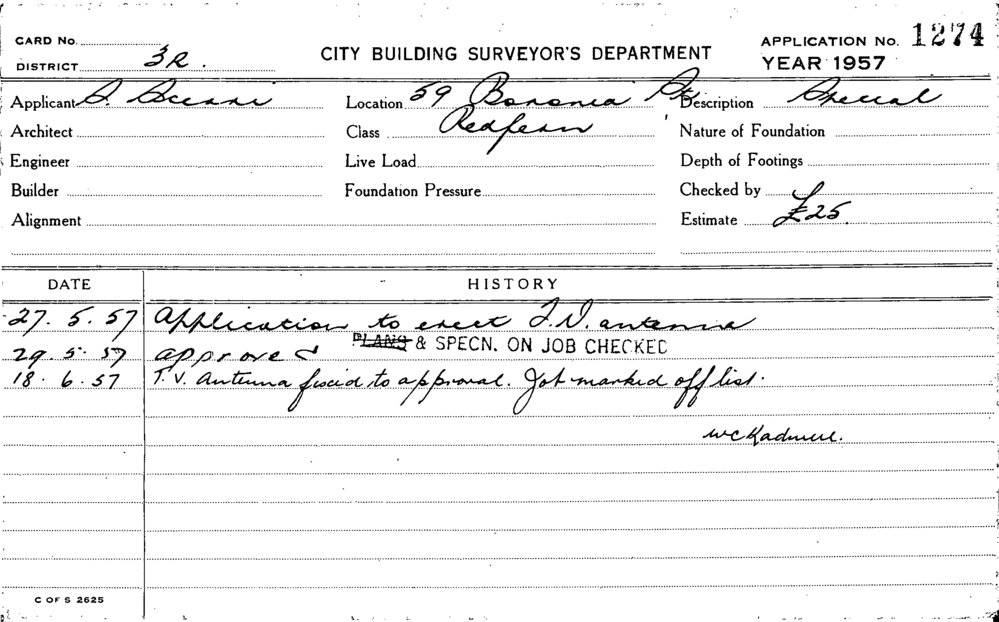 CARD No.
DISTRICT 3R.
CITY BUILDING SURVEYOR'S DEPARTMENT
APPLICATION No. 1274
YEAR 1957
Applicant S.
Location 59 Boronia St
Description Special
Architect
Class Redfern
Nature of Foundation
Engineer
Live Load
Depth of Footings
Builder
Foundation Pressure
Checked by
Alignment
Estimate £25.
DATE HISTORY
27. 5. 57 Application to erect T.V. antenna
PLANS & SPECN. ON JOB CHECKED
29 5. 57 approved
18. 6. 57 T.V. Antenna fixed to approval. Job marked off list.
C OF S 2625